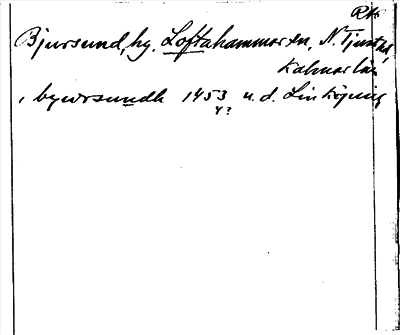 RA
Bjursund, hg. Loftahammar sn, N. Tjust hd,
Kalmar län
, bywrsundh 1453 u. d. Linköping
4?